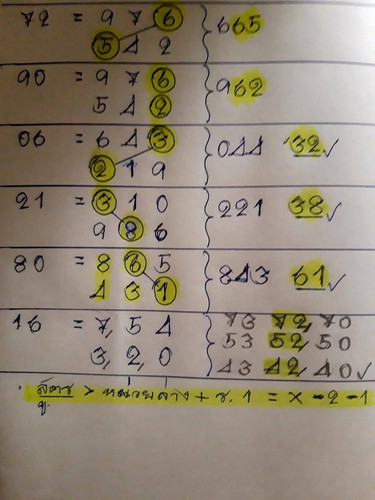 72 = 9 7 6 } 665
5 4 2
90 = 9 7 6 } 962
5 4 2
06 = 6 4 3 } 044 32 ✓
2 1 9
21 = 3 1 0 } 221 38 ✓
9 8 6
80 = 8 6 5 } 843 61 ✓
4 3 1
16 = 7, 5 4 } 73 72, 70
53 52, 50
3, 2, 0 43 42, 40 ✓
สูตร > หน่วยล่าง + ร. 1 = x - 2 - 1